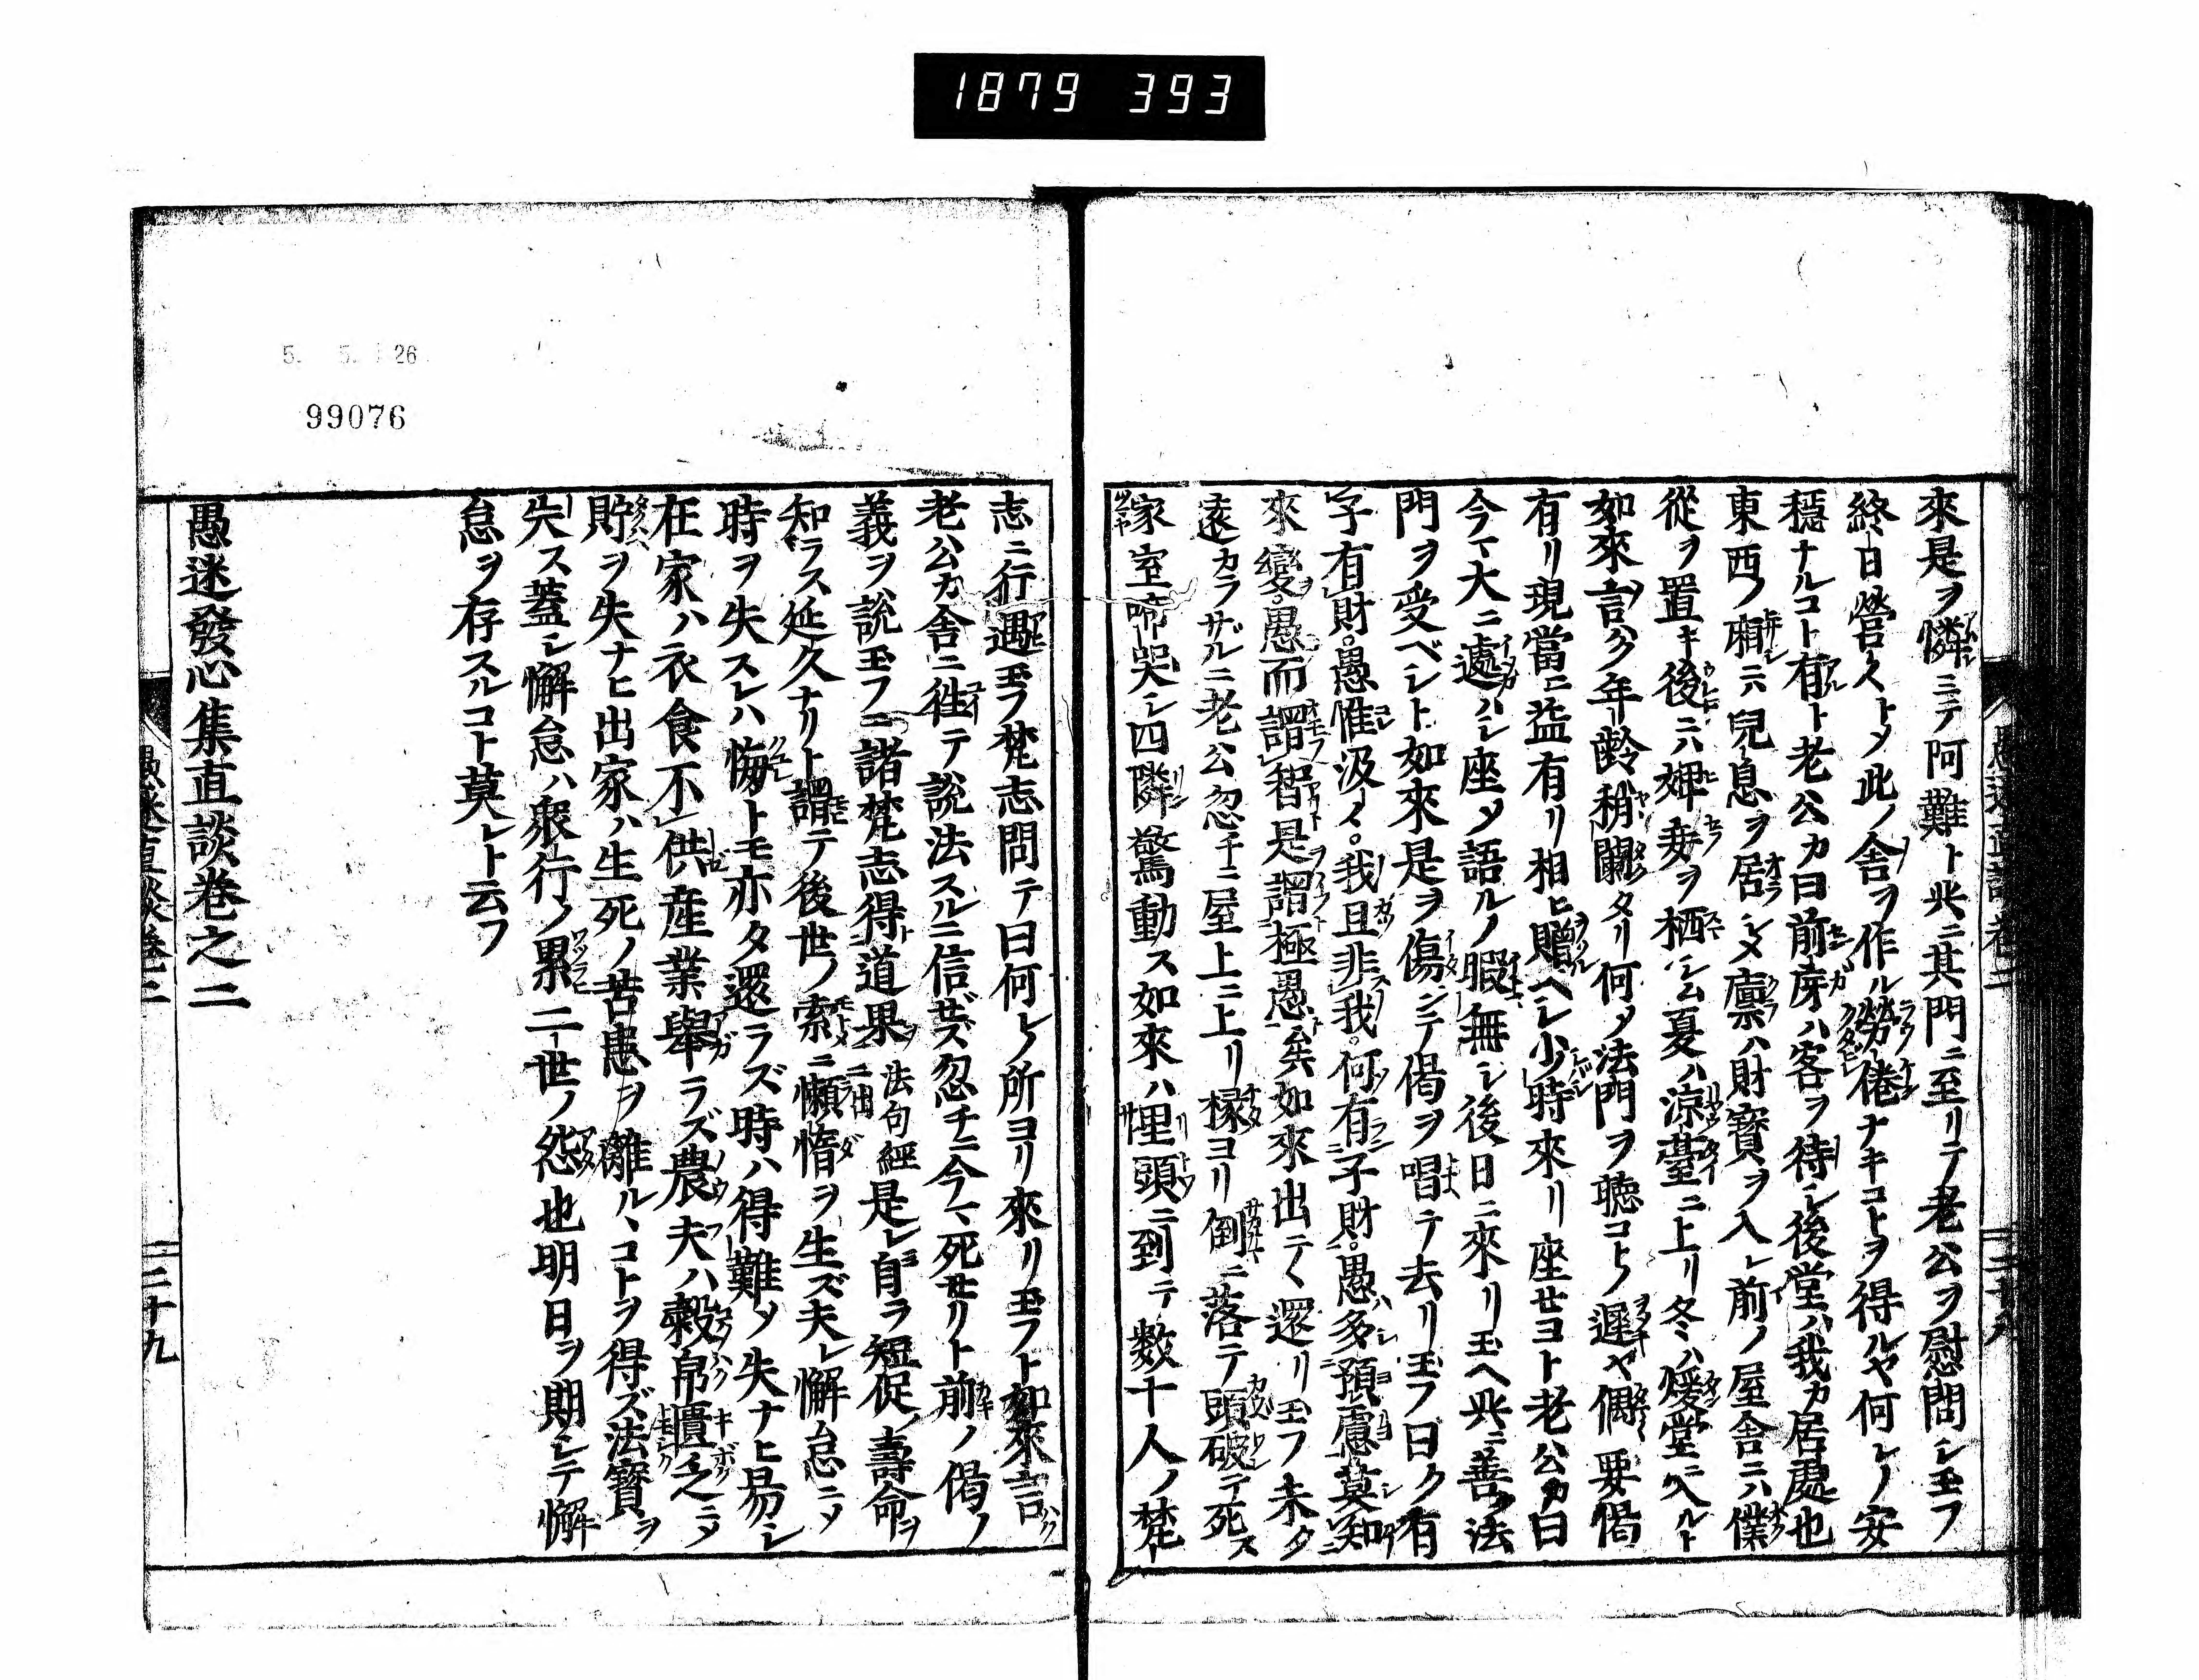 1879 393
來是ヲ憐ミテ阿難ト共ニ其門ニ至リテ老公ヲ慰問シ玉フ
終日營々トメ此ノ舍ヲ作ル勞倦ナキコトヲ得ルヤ何レノ安
穩ナルコト有ト老公カ曰前房ハ客ヲ待シ後堂ハ我カ居處也
東西ノ廂ニハ兒息ヲ居シメ廩ハ財寶ヲ入レ前ノ屋舍ニハ僕
從ヲ置キ後ニハ婢妾ヲ栖シム夏ハ涼臺ニ上リ冬ハ煖堂ニ入ルト
如來言ク年齡稍闌タリ何ソ法門ヲ聽コトノ遲ヤ偶要偈
有リ現當ニ益有リ相ヒ贈ヘシ少時來リ座セヨト老公カ曰
今マ大ニ遽ハシ座メ語ルノ暇無シ後日ニ來リ玉ヘ共ニ善法
門ヲ受ベシト如來是ヲ傷ンテ偈ヲ唱テ去リ玉フ曰ク有
子有財愚惟汲々我且非我何有子財愚多預慮莫知
來變愚而謂智是謂極愚矣如來出テ還リ玉フ未タ
遠カラザルニ老公忽チニ屋上ニ上リ椽ヨリ倒ニ落テ頭破テ死ス
家室啼哭シ四隣驚動ス如來ハ埋頭ニ到テ数十人ノ梵
志ニ行遇玉フ梵志問テ曰何レノ所ヨリ來リ玉フト如來言
老公カ舍ニ徃テ說法スルニ信ゼス忽チニ今マ死セリト前ノ偈ノ
義ヲ說玉フニ諸梵志得道果 法句經ニ出 是レ自ラ短促ノ壽命ヲ
知ラス延久ナリト謂テ後世ノ索ニ懶惰ヲ生ズ夫レ懈怠ニメ
時ヲ失スレハ悔トモ亦タ還ラズ時ハ得難メ失ナヒ易シ
在家ハ衣食不供産業舉ラズ農夫ハ穀帛匱乏ニメ
貯ヲ失ナヒ出家ハ生死ノ苦患ヲ離ルヽコトヲ得ズ法寶ヲ
失ス蓋シ懈怠ハ衆行ノ累ニ二世ノ怨也明日ヲ期シテ懈
怠ヲ存スルコト莫レト云フ
愚迷發心集直談卷之二
愚迷直談卷二
二十九
99076